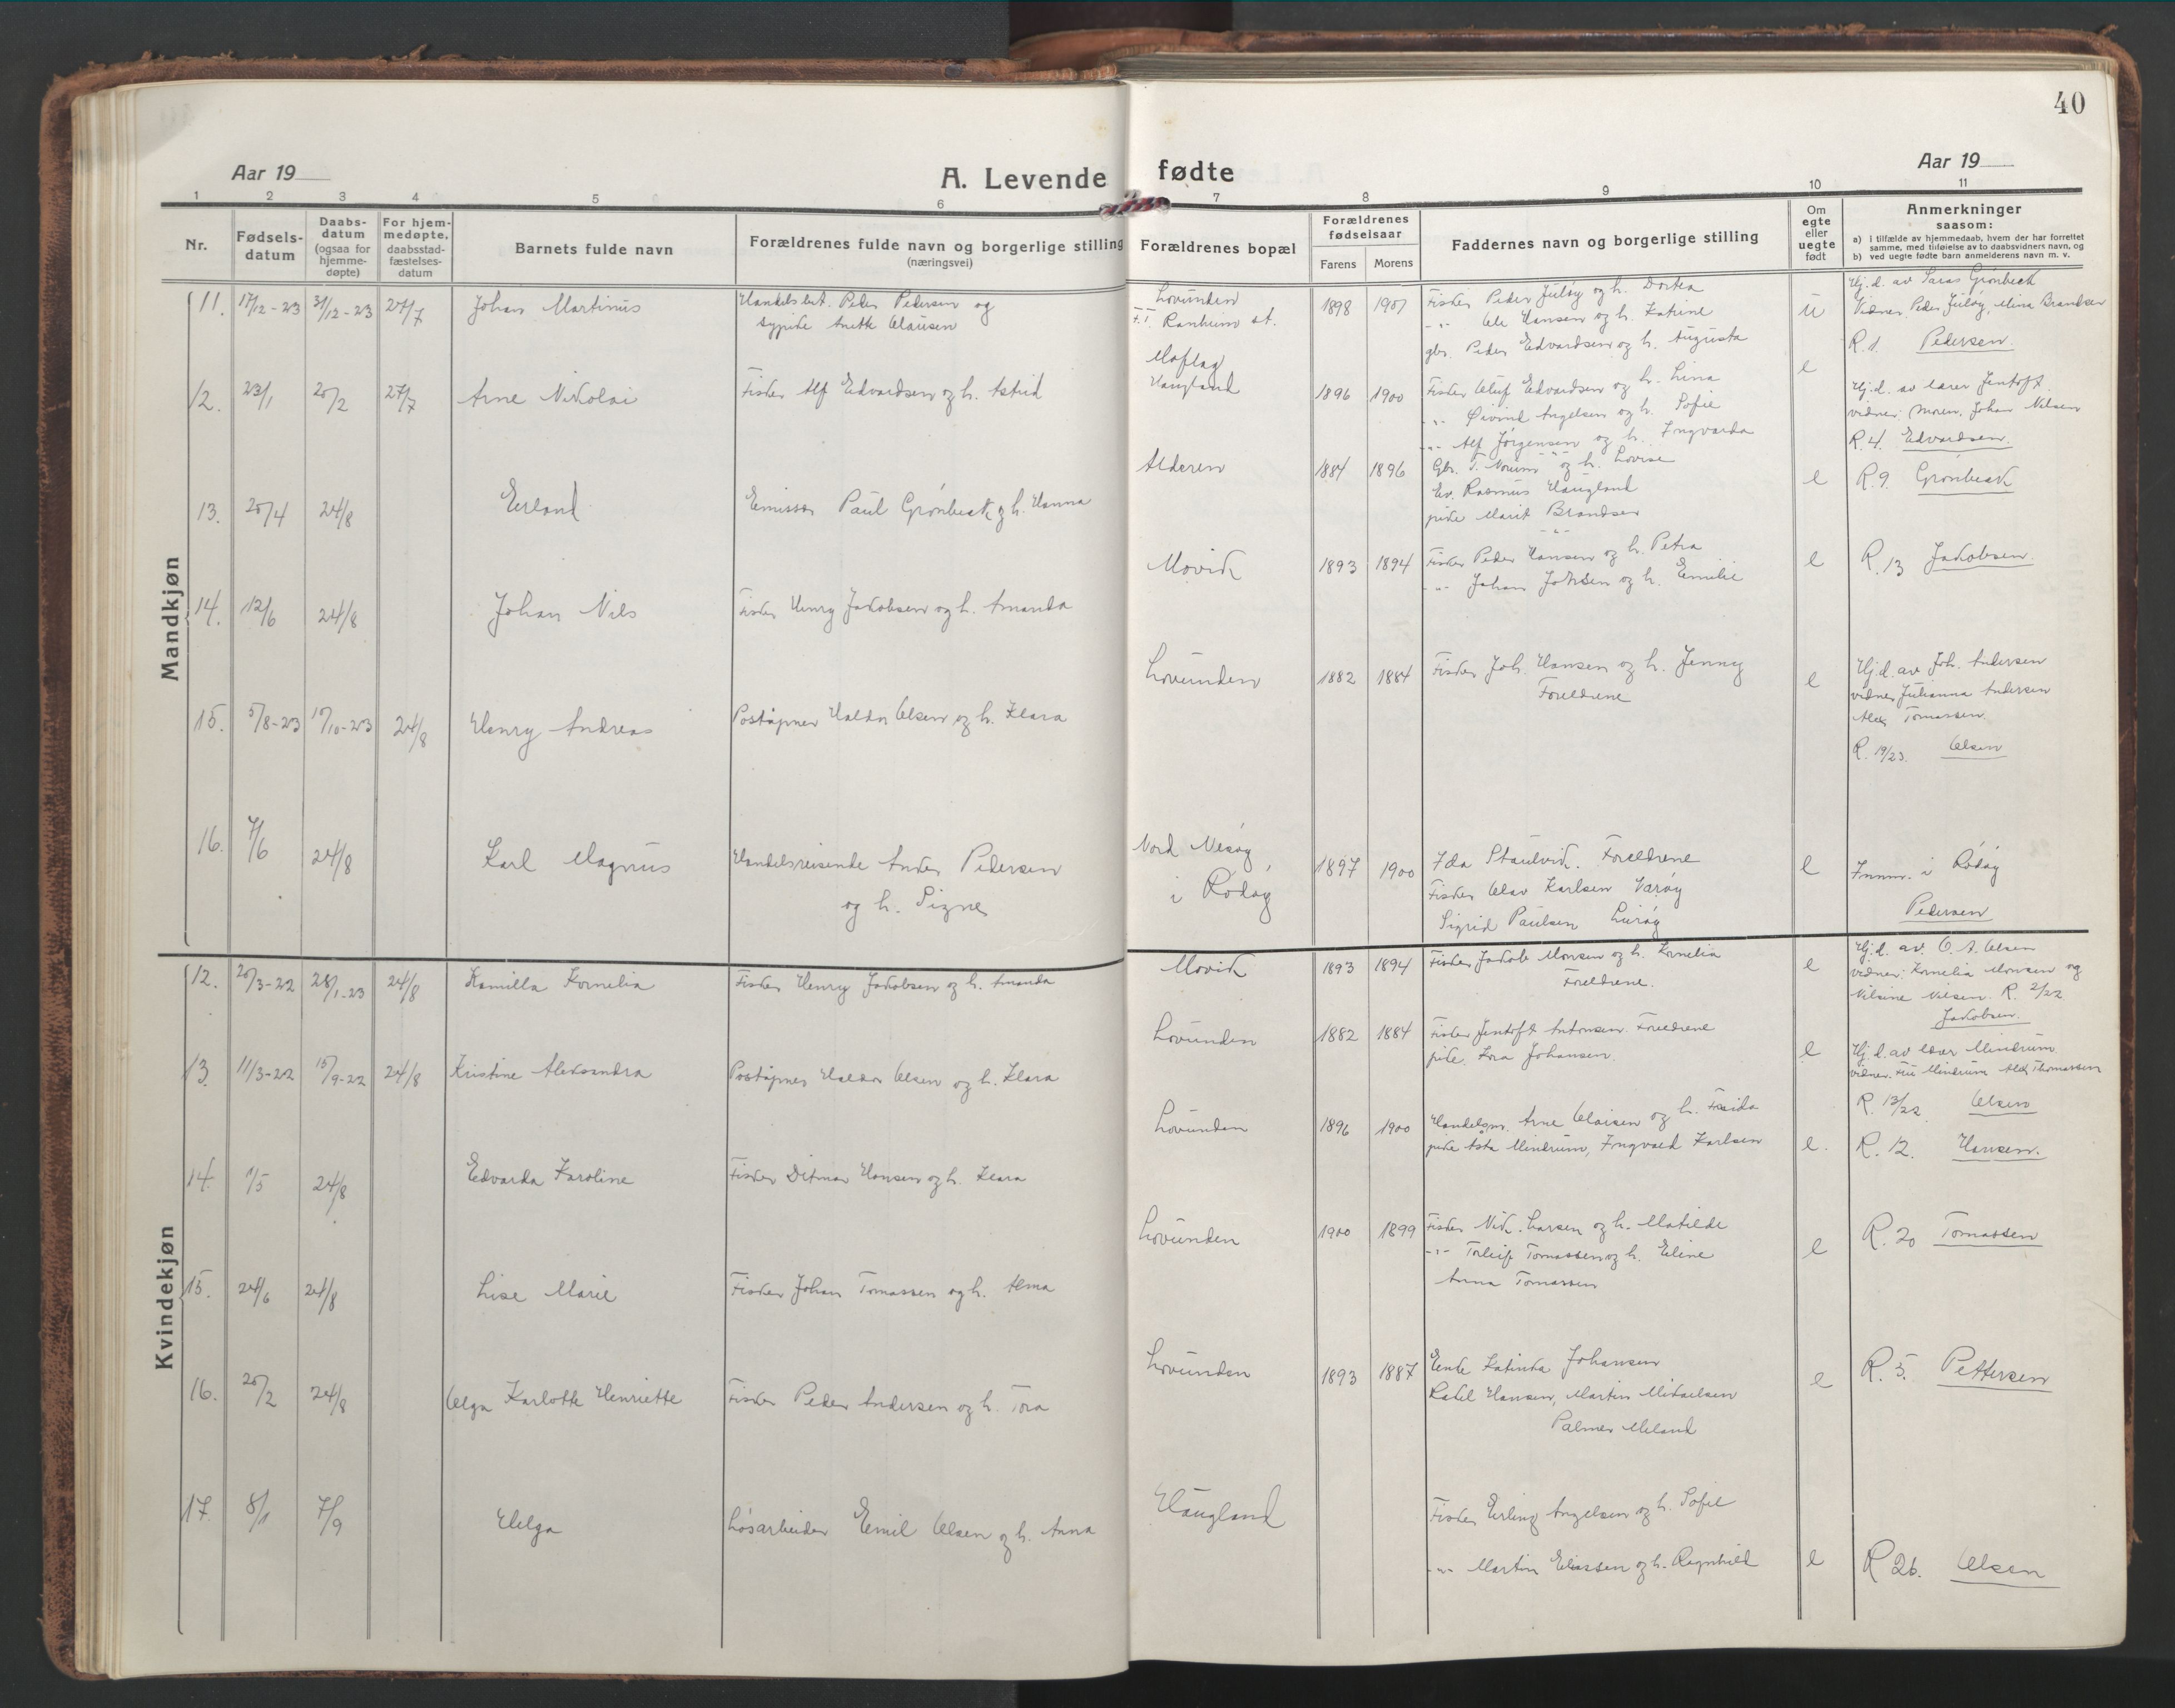 40
Aar 19
A. Levende fødte
Aar 19
1 2 3 4 5 6 7 8 9 10 11
Nr.
Fødsels-
datum
Daabs-
datum
(ogsaa for
hjemme-
døpte)
For hjem-
medøpte,
daabsstad-
fæstelses-
datum
Barnets fulde navn
Forældrenes fulde navn og borgerlige stilling
(næringsvei)
Forældrenes bopæl
Forældrenes
fødselsaar
Farens Morens
Faddernes navn og borgerlige stilling
Om
egte
eller
uegte
født
Anmerkninger
saasom:
a) i tilfælde av hjemmedaab, hvem der har forrettet
samme, med tilføielse av to daabsvidners navn, og
b) ved uegte fødte barn anmelderens navn m. v.
Mandkjøn
11. 17/12-23 31/12-23 27/7 Johan Martinus
Handelsbet. Peder Pedersen og
sypike Anette Clausen
Lovunden
F.T. Ranheim st.
1898 1907
Fisker Peder Juløy og h. Dortea
-"- Ole Hansen og h. Katrine
gbr. Peder Edvardsen og h. Augusta
u
Hj.d. av Saras Grønbeck
Vidner Peder Juløy, Mina Brandsen
R. 1. Pedersen.
12. 23/1 20/2 27/7 Arne Nikolai
Fisker Alf Edvardsen og h. Astrid
Haugland
1896 1900
Fisker Oluf Edvardsen og h. Lina
-"- Øivind Angelsen og h. Sofie
-"- Alf Jørgensen og h. Ingvarda
e
Hj.d. av lærer Jentoft.
vidner: Moren, Johan Nilsen
R. 4. Edvardsen.
13. 20/4 24/8 Erland
Emissær Paul Grønbeck og h. Hanna
Alderen
1884 1896
Gbr. T. Norum og h. Lovise
Ev. Rasmus Haugland
pike Marit Brandsen
e
R. 9. Grønbeck
14. 12/6 24/8 Johan Nils
Fisker Henry Jakobsen og h. Amanda
Movik
1893 1894
Fisker Peder Hansen og h. Petra
-"- Johan Johnsen og h. Emilie
e
R. 13 Jakobsen.
15. 5/8-23 17/10-23 24/8 Henry Andreas
Poståpner Haldor Olsen og h. Klara
Lovunden
1882 1884
Fisker Joh. Hansen og h. Jenny
Foreldrene
e
Hj.d. av Joh. Andersen
vidner Julianna Andersen
Alex Tomassen.
R. 19/23. Olsen
16. 7/6 24/8 Karl Magnus
Handelsreisende Anders Pedersen
og h. Signe
Nord Nesøy
i Rødøy
1897 1900
Ida Staulvik. Foreldrene
Fisker Olav Karlsen Varøy
Sigrid Paulsen Lurøy
e
Innm. i Rødøy
Pedersen
Kvindekjøn
12. 20/3-22 28/1-23 24/8 Kamilla Kornelia
Fisker Henry Jakobsen og h. Amanda
Movik
1893 1894
Fisker Jakob Monsen og h. Kornelia
Foreldrene.
e
Hj.d. av. O. A. Olsen
vidner: Kornelia Monsen og
Nilsine Nilsen. R. 2/22
Jakobsen.
13. 11/3-22 15/9-22 24/8 Kristine Aleksandra
Poståpner Haldor Olsen og h. Klara
Lovunden
1882 1884
Fisker Jentoft Antonsen. Foreldrene
pike. Kora Johansen.
e
Hj.d. av lærer Mindrum
vidner. Fru Mindrum Alex Thomassen
R. 13/22 Olsen
14. 1/5 24/8 Edvarda Karoline
Fisker Ditmar Hansen og h. Klara
Lovunden
1896 1900
Handelsm. Arne Olaisen og h. Frida
pike Asta Mindrum, Ingvald Karlsen
e.
R. 12. Hansen.
15. 24/6 24/8 Lise Marie
Fisker Johan Tomassen og h. Alma
Lovunden
1900 1899
Fisker Nik. Larsen og h. Matilde
-"- Torleif Tomassen og h. Eline
Anna Tomassen
e
R. 20 Tomassen
16. 20/2 24/8 Olga Karlotte Henriette
Fisker Peder Andersen og h. Tora
Lovunden
1893 1887
Enke Katinka Johansen
Rakel Hansen, Martin Mikaelsen
Palmer Meland
e
R. 5. Pettersen
17. 8/1 7/9 Helga
Løsarbeider Emil Olsen og h. Anna
Haugland
Fisker Erling Angelsen og h. Sofie
-"- Martin Eliassen og h. Ragnhild
e
R 26. Olsen